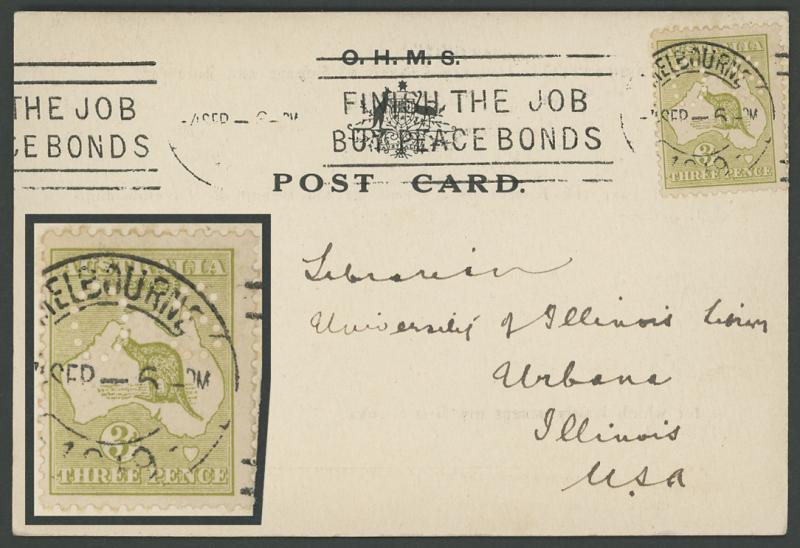 O. H. M. S.
THE JOB
FINISH THE JOB
BUY PEACE BONDS
POST CARD.
MELBOURNE
SEP — 6 — PM
AUSTRALIA
3
THREE PENCE
Librarian
University of Illinois Library
Urbana
Illinois
U.S.A
AUSTRALIA
MELBOURNE
SEP — 6 — PM
3
THREE PENCE